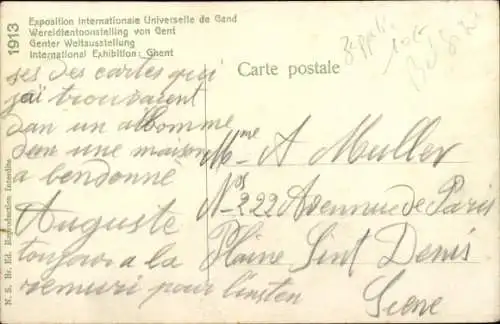 1913
Exposition Internationale Universelle de Gand
Wereldtentoonstelling von Gent
Genter Weltausstellung
International Exhibition: Ghent
Carte postale
ses des cartes qui
j'ai trouvaient
dan un albomme
dan une maison
a bendonné
Auguste
toujour a la
pour l'insten
Mme A Muller
Nos 222 Avennue de Paris
Plaine Sint Denis
Seine
N. S. Br. Ed. Reproduction Interdite